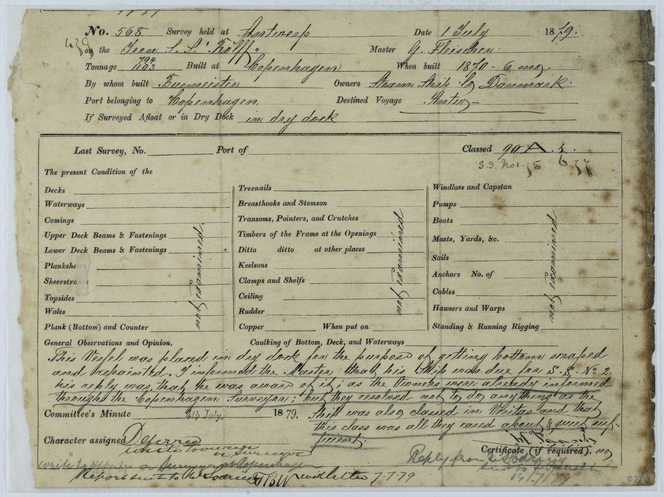 No. 568 Survey held at Antwerp Date 1 July 1879.
on the Iron S.S. "Kolff" Master G. Fleischer
Tonnage 794 1203 Built at Copenhagen When built 1870 - 6 mo.
By whom built Burmeister Owners Steam Ship Co Danmark.
Port belonging to Copenhagen Destined Voyage
If Surveyed Afloat or in Dry Dock in dry dock
Last Survey, No. Port of Classed 90 A 1.
The present Condition of the
Decks
Waterways
Comings
Upper Deck Beams & Fastenings
Lower Deck Beams & Fastenings
Planksheer
Sheerstrakes
Topsides
Wales
Plank (Bottom) and Counter
not examined
Treenails
Breasthooks and Stemson
Transoms, Pointers, and Crutches
Timbers of the Frame at the Openings
Ditto ditto at other places
Keelsons
Clamps and Shelfs
Ceiling
Rudder
Copper When put on
not examined
Windlass and Capstan
Pumps
Boats
Masts, Yards, &c.
Sails
Anchors No. of
Cables
Hawsers and Warps
Standing & Running Rigging
not examined
General Observations and Opinion. Caulking of Bottom, Deck, and Waterways
This Vessel was placed in dry dock for the purpose of getting bottom scraped
and repainted, I informed the Master that his Ship was due for S.S. No 2
his reply was that he was aware of it; as the Owners were already informed
through the Copenhagen Surveyor; but they resolved not to do anything as the
Committee's Minute 8th July, 1879. Ship was also classed in Veritas and that
this class was all they cared about & quite suf-
ficient.
Character assigned Deferred
Certificate (if required). no
Write to
Copenhagen
Report sent to the
7-7-79
Reply from